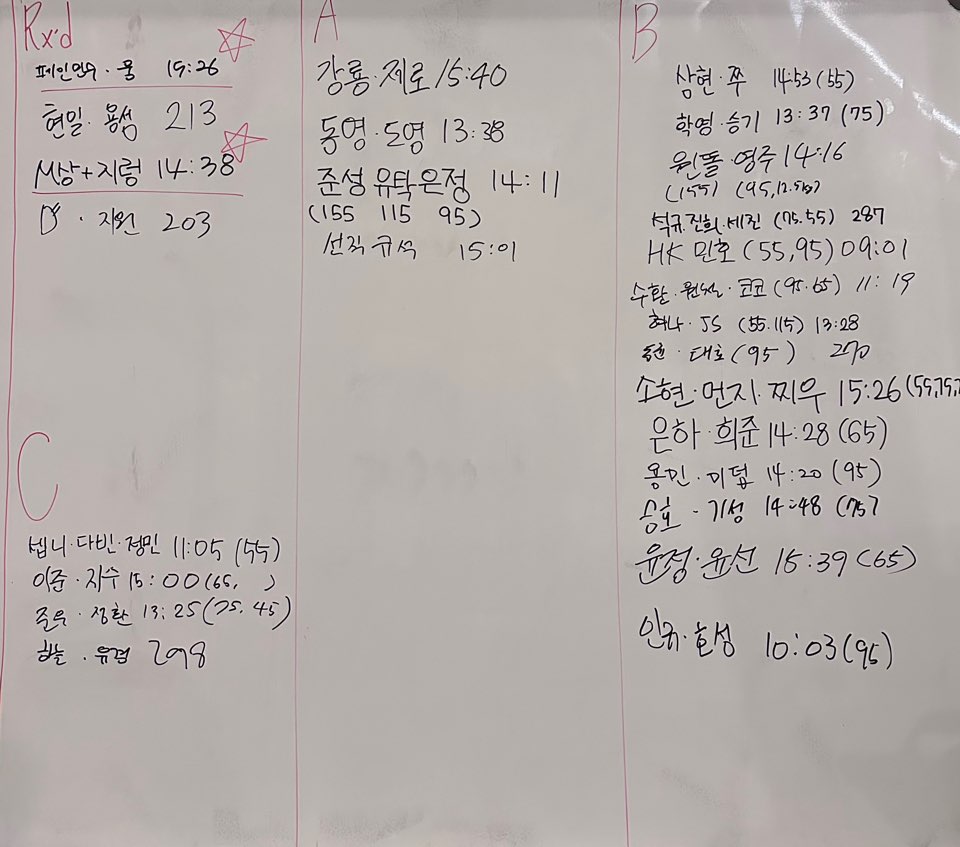 Rx'd
페인민수·웅 15:26
현일·용섭 213
M상+지렁 14:38
D ·지원 203
A
강룡·제로 15:40
동영·도영 13:38
준성 유탁은정 14:11
(155 115 95)
선직 규석 15:01
B
삼현·쭈 14:53 (55)
학영·승기 13:37 (75)
원똘 영주 14:16
(155) (95,
석규.진희.세진 (75.55) 287
HK 민호 (55,95) 09:01
수환··코코 (95.65) 11:19
하나·JS (55.115) 13:28
·대호 (95) 270
소현·먼지·찌우 15:26 (55,75,
은하·희준 14:28 (65)
용민·미덥 14:20 (95)
승호·기성 14:48 (75)
윤정·윤선 15:39 (65)
인규·효성 10:03 (95)
C
셉니·다빈·정민 11:05 (55)
이준·지수 15:00 (65, )
준우·정환 13:25 (75.45)
하늘·유겸 298